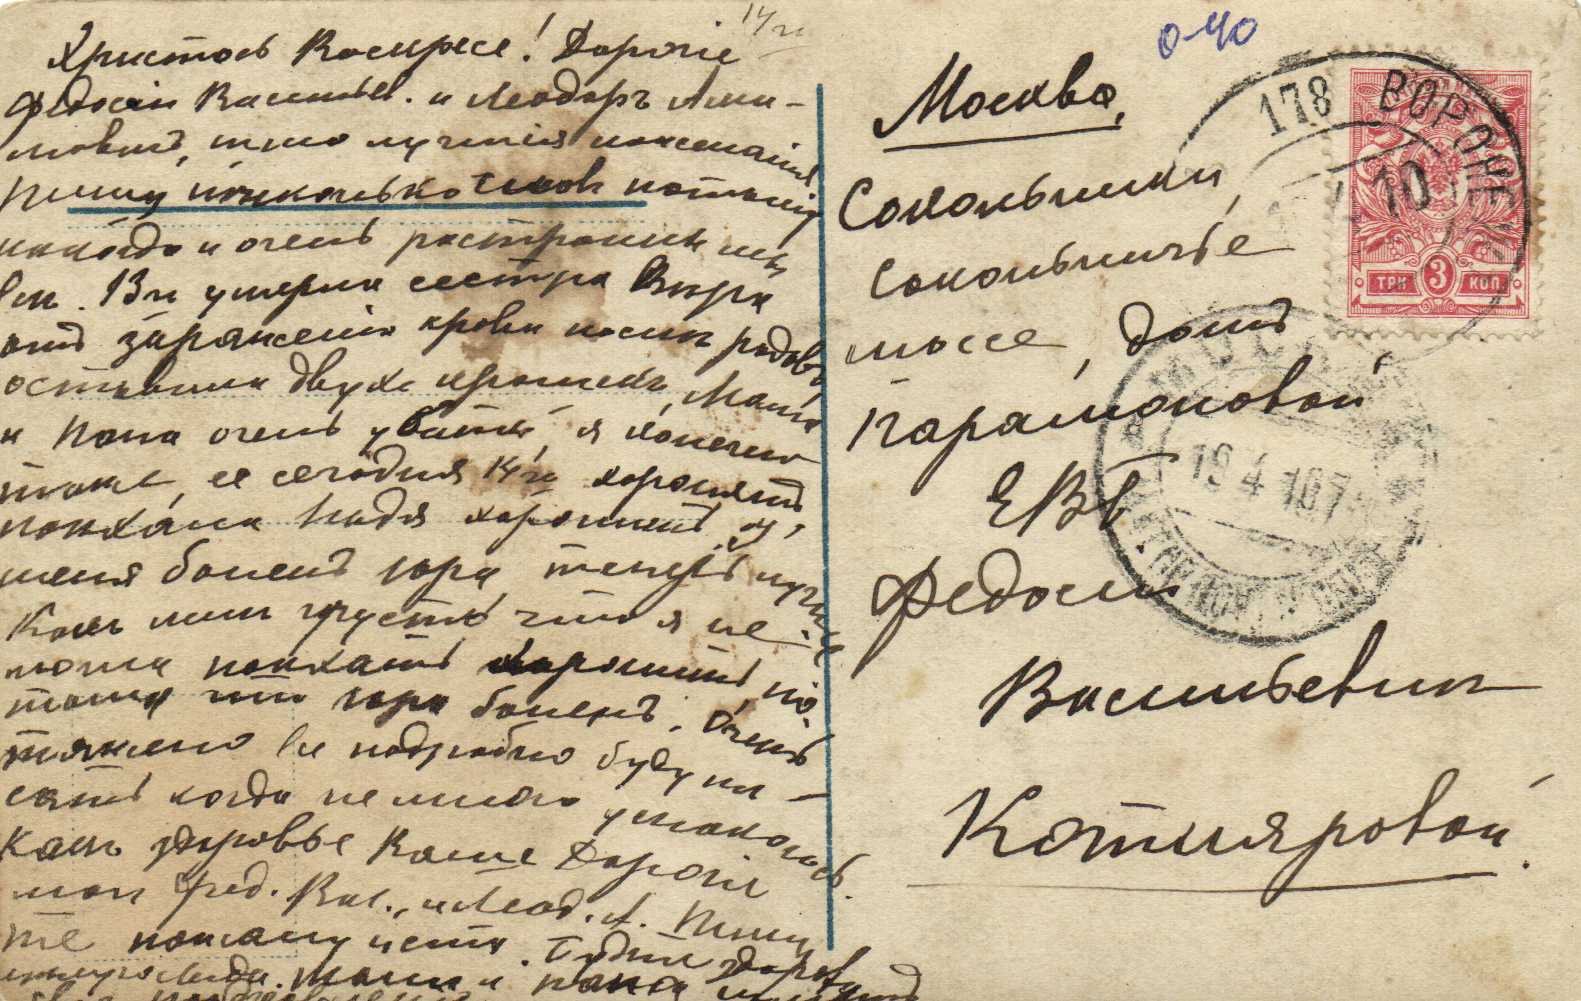 14 го
Христосъ Воскресе! Дорогіе
Федосія Васильев. и Леодоръ
шлю лучшія пожеланія
Пишу нѣсколько словъ потому
некогда и очень растроини
13 го умерла сестра Вѣра
отъ зараженія крови послѣ родовъ
оставила двухъ крошекъ, Мама
и Папа очень убиты, я конечно
тоже, ее сегодня 14 го хоронятъ
поѣхала Надя хоронить, у
меня боленъ Юра, теперь лучше
Какъ мнѣ грусть что я не
могла поѣхать хоронить, по-
тому что Юра боленъ. Очень
тяжело все подробно буду пи-
сать когда немного успокоюсь.
Какъ здоровье Ваше Дорогія
мои Фед. Вас., и Леод. А. Пиши
те пожалуйста. Будьте здоровы
Мама и папа
0-40
Москва,
Сокольники,
Сокольничье
шоссе, домъ
Парамоновой
ЕВБ.
Федосіи
Васильевнѣ
Котляровой.
178 ВОРОНЕЖ
10
ТРИ 3 КОП
МОСКВА
19 4 10 7